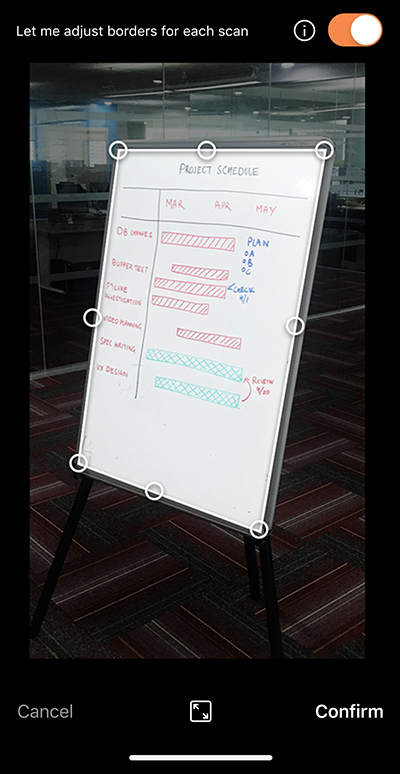 Let me adjust borders for each scan
PROJECT SCHEDULE
MAR APR MAY
DB CHANGES
PLAN
A
B
C
BUFFER TEST
FAILURE
INVESTIGATION
CHECK
4/1
VIDEO PLANNING
SPEC WRITING
UX DESIGN
REVIEW
4/20
Cancel
Confirm